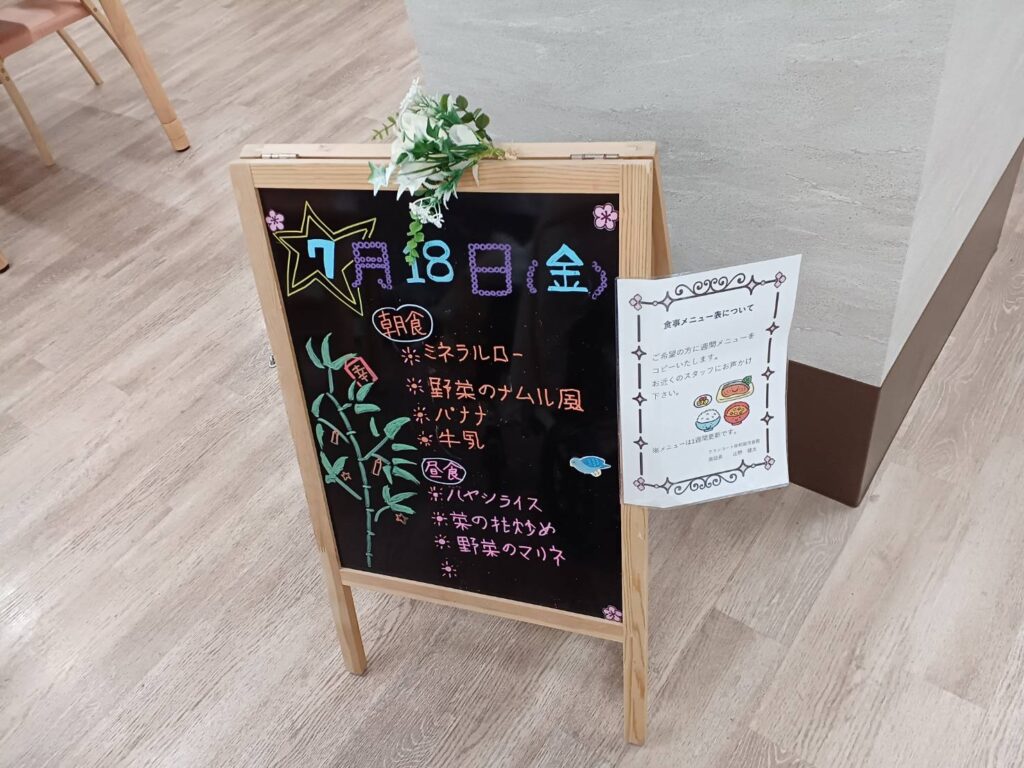 7月18日(金)
朝食
ミネラルロー
野菜のナムル風
バナナ
牛乳
昼食
ハヤシライス
菜の花炒め
野菜のマリネ
食事メニュー表について
ご希望の方に週間メニューを
コピーいたします。
お近くのスタッフにお声かけ
下さい。
※メニューは1週間更新です。
施設長